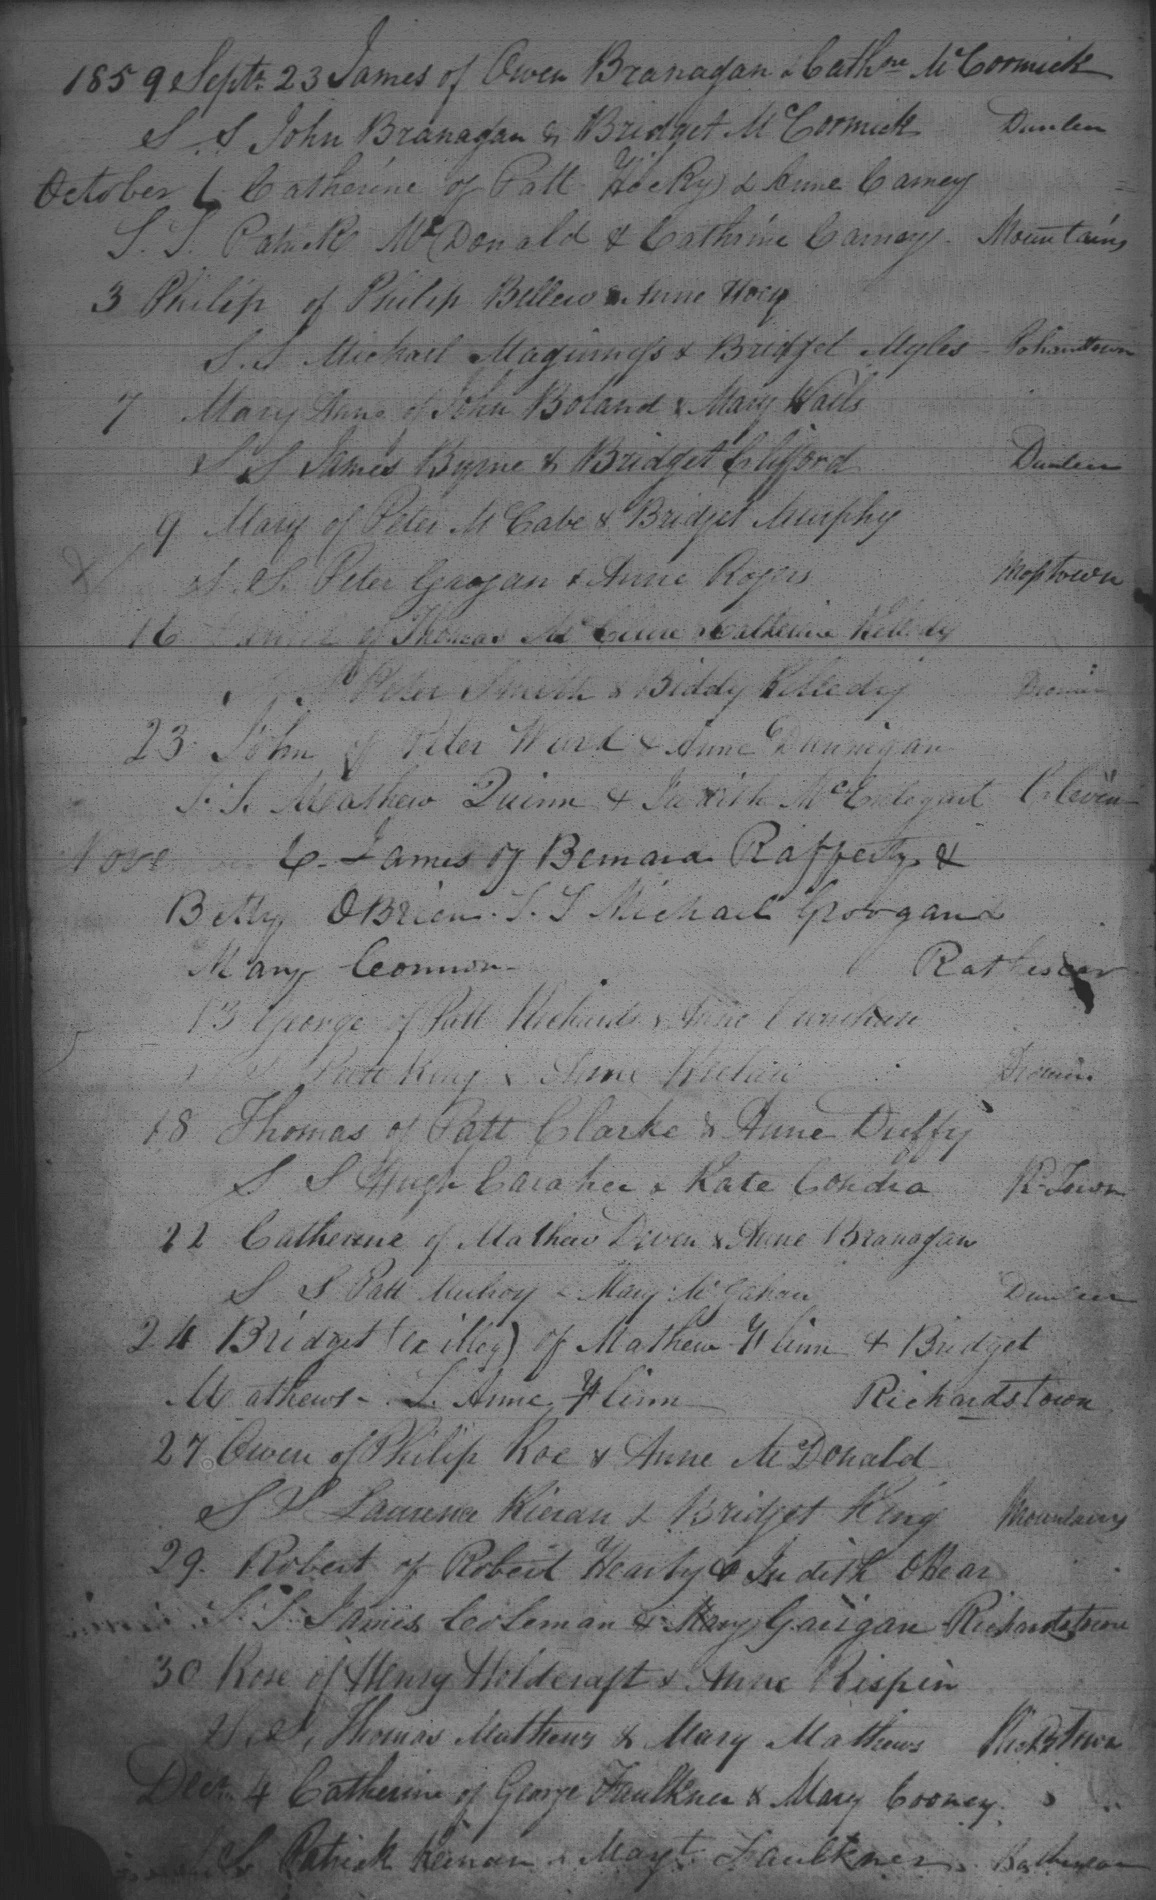 1859 Septr. 23 James of Owen Branagan & Cathne McCormick
S. S John Branagan & Bridget McCormick Dunleer
October Catherine of Patt & Anne Carney
S. S. Patrick McDonald & Cathrine Carney. Mountains
3 Philip of Philip Bellew & Anne Hoey
S. S Michael Maguinness & Bridget Myles
7 Mary Anne of John Boland & Mary
S S James Byrne & Bridget Clifford Dunleer
9 Mary of Peter McCabe & Bridget Murphy
S. S. Peter Grogan & Anne Rogers Moptown
16 of Thomas & Catherine Kelledy
S Peter Smith & Biddy Kelledy Dromin
23 John of Peter Ward & Anne Dunnigan
S. S. Mathew Quinn & Judith McEntegart
Nove 6. James of Bernard Rafferty &
Betty OBrien. S. S Michael Groogan &
Mary Connor
13 George of Patt & Anne
S Patt King & Anne Dromin
18 Thomas of Patt Clarke & Anne Duffy
S S Hugh Caraher & Kate Condra R-Town
22 Catherine of Mathew & Anne Branagan
S S Patt & Mary McGahan Dunleer
24 Bridget (ex illeg) of Mathew Flinn & Bridget
Mathews - S. Anne Flinn Richardstown
27 Owen of Philip Roe & Anne McDonald
S S Laurence Kieran & Bridget King Mountains
29. Robert of Robert Hearty & Judith OHear
S. S. James Coleman & Mary Gaiigan Richardstown
30 Rose of Henry Holdcraft & Anne Rispin
S. S. Thomas Mathews & Mary Mathews
Decr. 4 Catherine of George Faulkner & Mary Cooney.
S Patrick Keinan & Mayt. Faulkner.